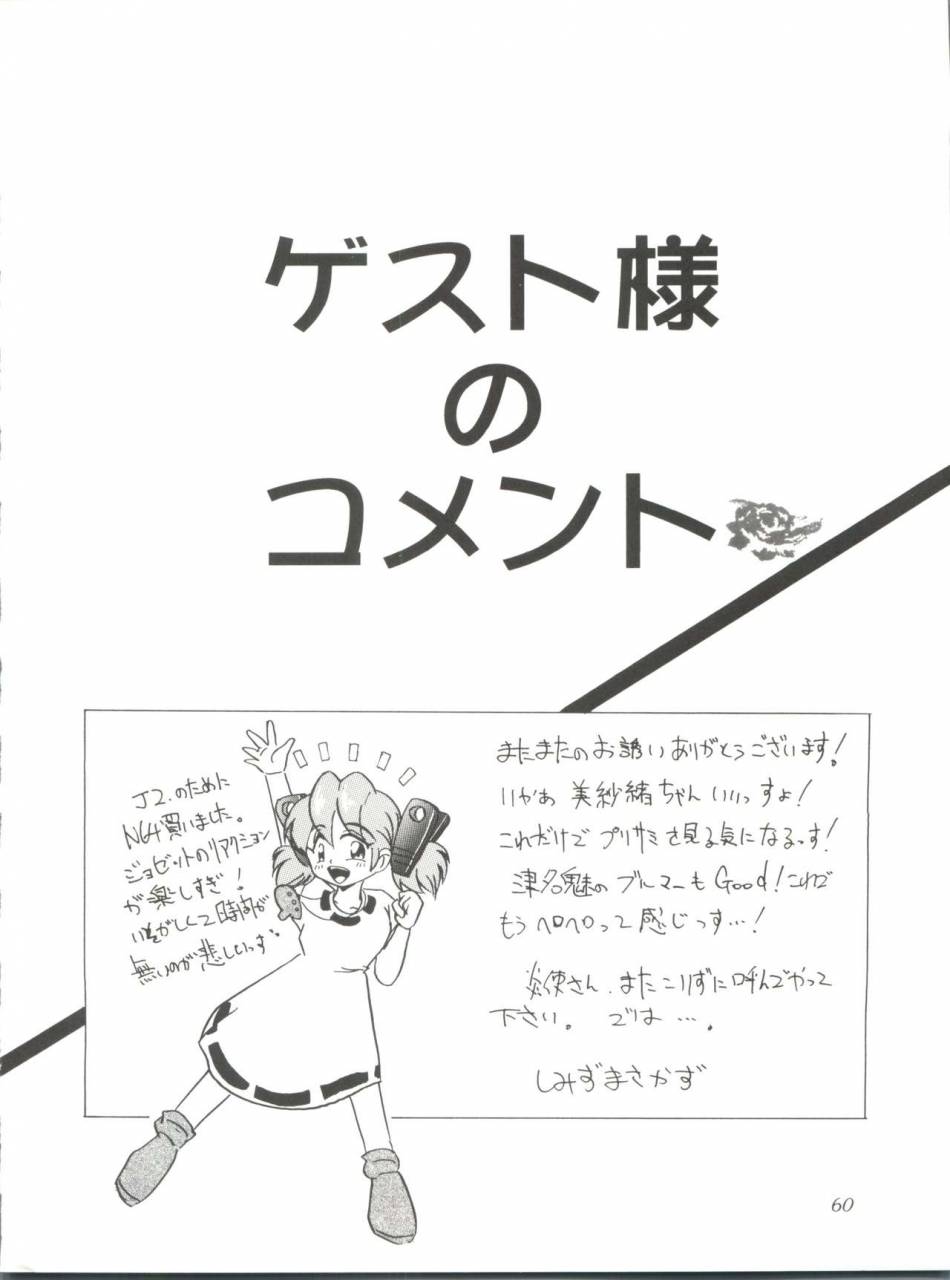 ゲスト様
の
コメント
またまたのお誘いありがとうございます!
いやあ 美紗緒ちゃん いいっすよ!
これだけで プリサミを見る気になるっす!
津名魅の ブルマーも Good! これで
もう ヘロヘロって 感じっす…!
炎使さん、またこりずに呼んでやって
下さい。 では …。
しみずまさかず
J2.のために
N64買いました。
ジョゼットのリアクション
が楽しすぎ!
いそがしくて時間が
無いのが悲しいっす。
60